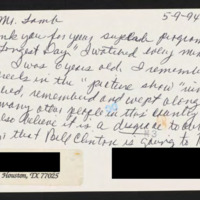 Mr. Lamb 5-9-94
thank you for your superb program
"Longest Day." I watched every minute
I was 6 years old. I remember
reels in the "picture show"
remember and wept along
many other people in this country
also believe it is a disgrace to
that Bill Clinton is going to
Houston, TX 77025